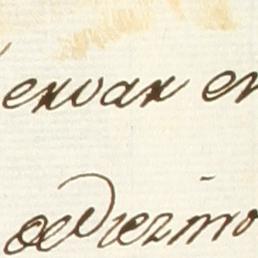 ervar en
de Diezmo